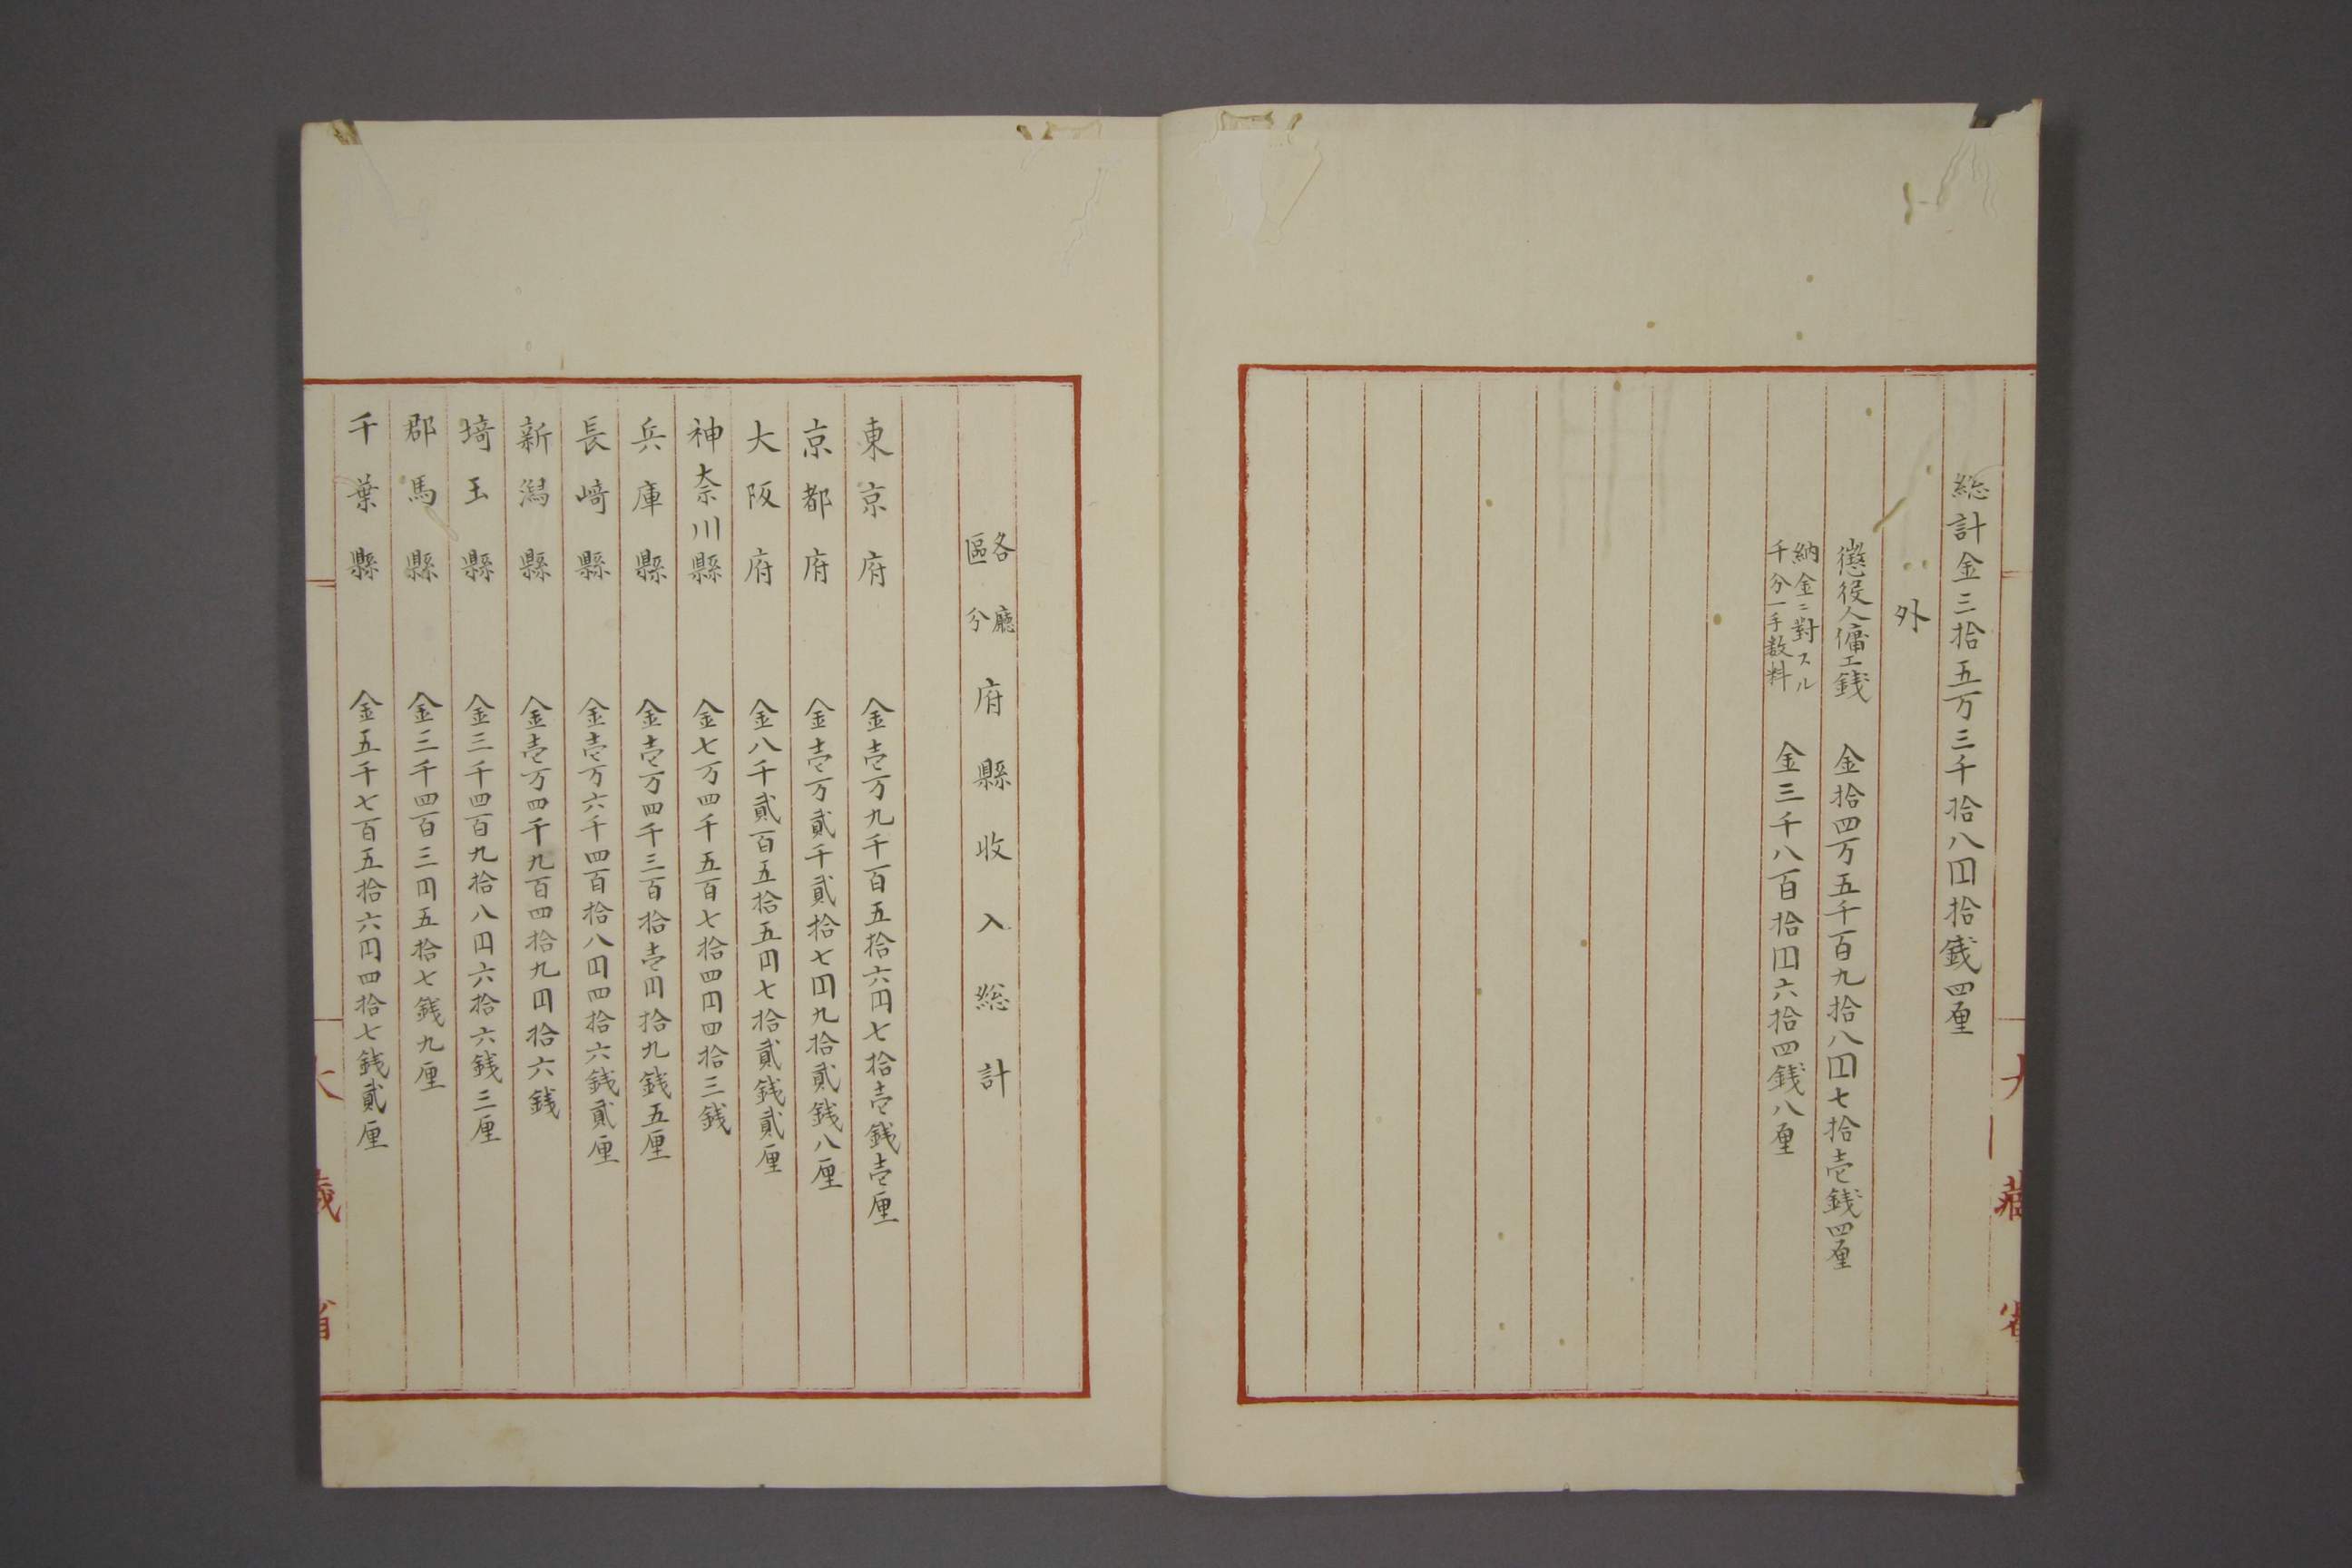 総計金三拾五万三千拾八円拾銭四厘
外
懲役人傭工銭 金拾四万五千百九拾八円七拾壱銭四厘
納金ニ對スル
千分一手数料 金三千八百拾円六拾四銭八厘
大藏省
各廳
區分 府縣收入総計
東京府 金壱万九千百五拾六円七拾壱銭壱厘
京都府 金壱万貳千貳拾七円九拾貳銭八厘
大阪府 金八千貳百五拾五円七拾貳銭貳厘
神奈川縣 金七万四千五百七拾四円四拾三銭
兵庫縣 金壱万四千三百拾壱円拾九銭五厘
長崎縣 金壱万六千四百拾八円四拾六銭貳厘
新潟縣 金壱万四千九百四拾九円拾六銭
埼玉縣 金三千四百九拾八円六拾六銭三厘
郡馬縣 金三千四百三円五拾七銭九厘
千葉縣 金五千七百五拾六円四拾七銭貳厘
大藏省